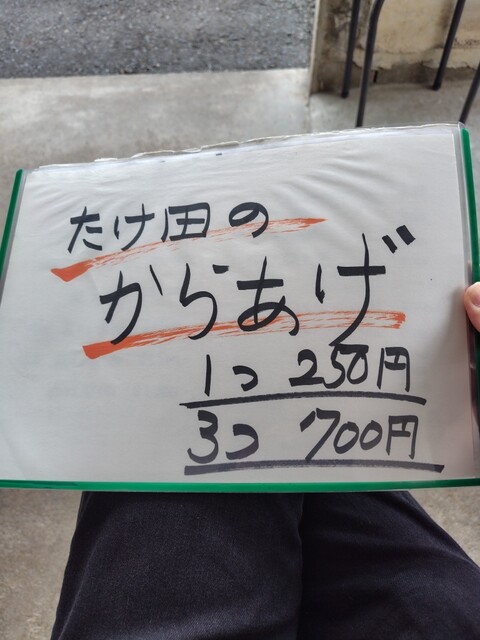 たけ田の
からあげ
1つ 250円
3つ 700円